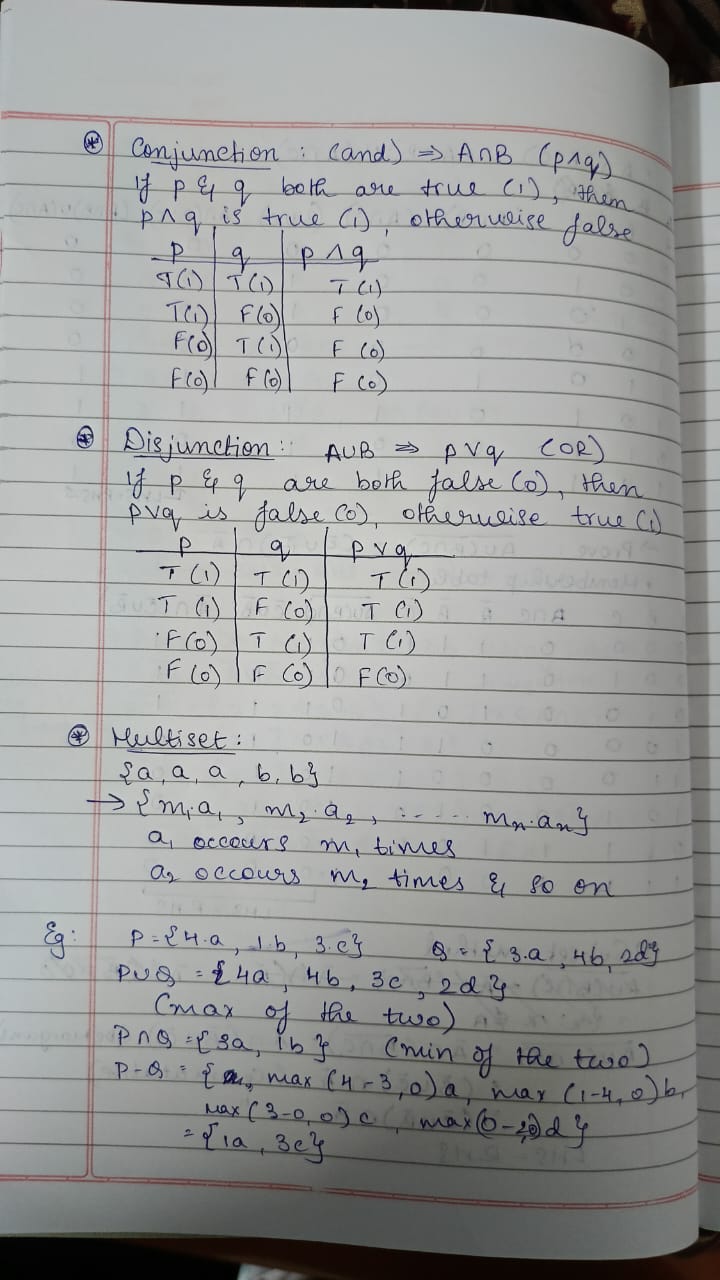 * Conjunction : (and) ⇒ A∩B (p∧q)
If p & q both are true (1), then
p∧q is true (1), otherwise false
p | q | p ∧ q
T(1) | T(1) | T (1)
T(1) | F(0) | F (0)
F(0) | T(1) | F (0)
F(0) | F(0) | F (0)
* Disjunction : A∪B ⇒ p∨q (OR)
If p & q are both false (0), then
p∨q is false (0), otherwise true (1)
p | q | p∨q
T (1) | T (1) | T (1)
T (1) | F (0) | T (1)
F(0) | T (1) | T (1)
F (0) | F (0) | F(0)
* Multiset :
{a, a, a, b, b}
→ {m₁a₁, m₂.a₂, ...... mₙ.aₙ}
a₁ occours m₁ times
a₂ occours m₂ times & so on
Eg: P={4.a, 1.b, 3.c} Q = {3.a, 4b, 2d}
P∪Q = {4a, 4b, 3c, 2d}
(max of the two)
P∩Q ={3a, 1b} (min of the two)
P-Q = {max (4-3,0)a, max (1-4,0)b,
max (3-0,0)c, max(0-2,0)d}
= {1a, 3c}